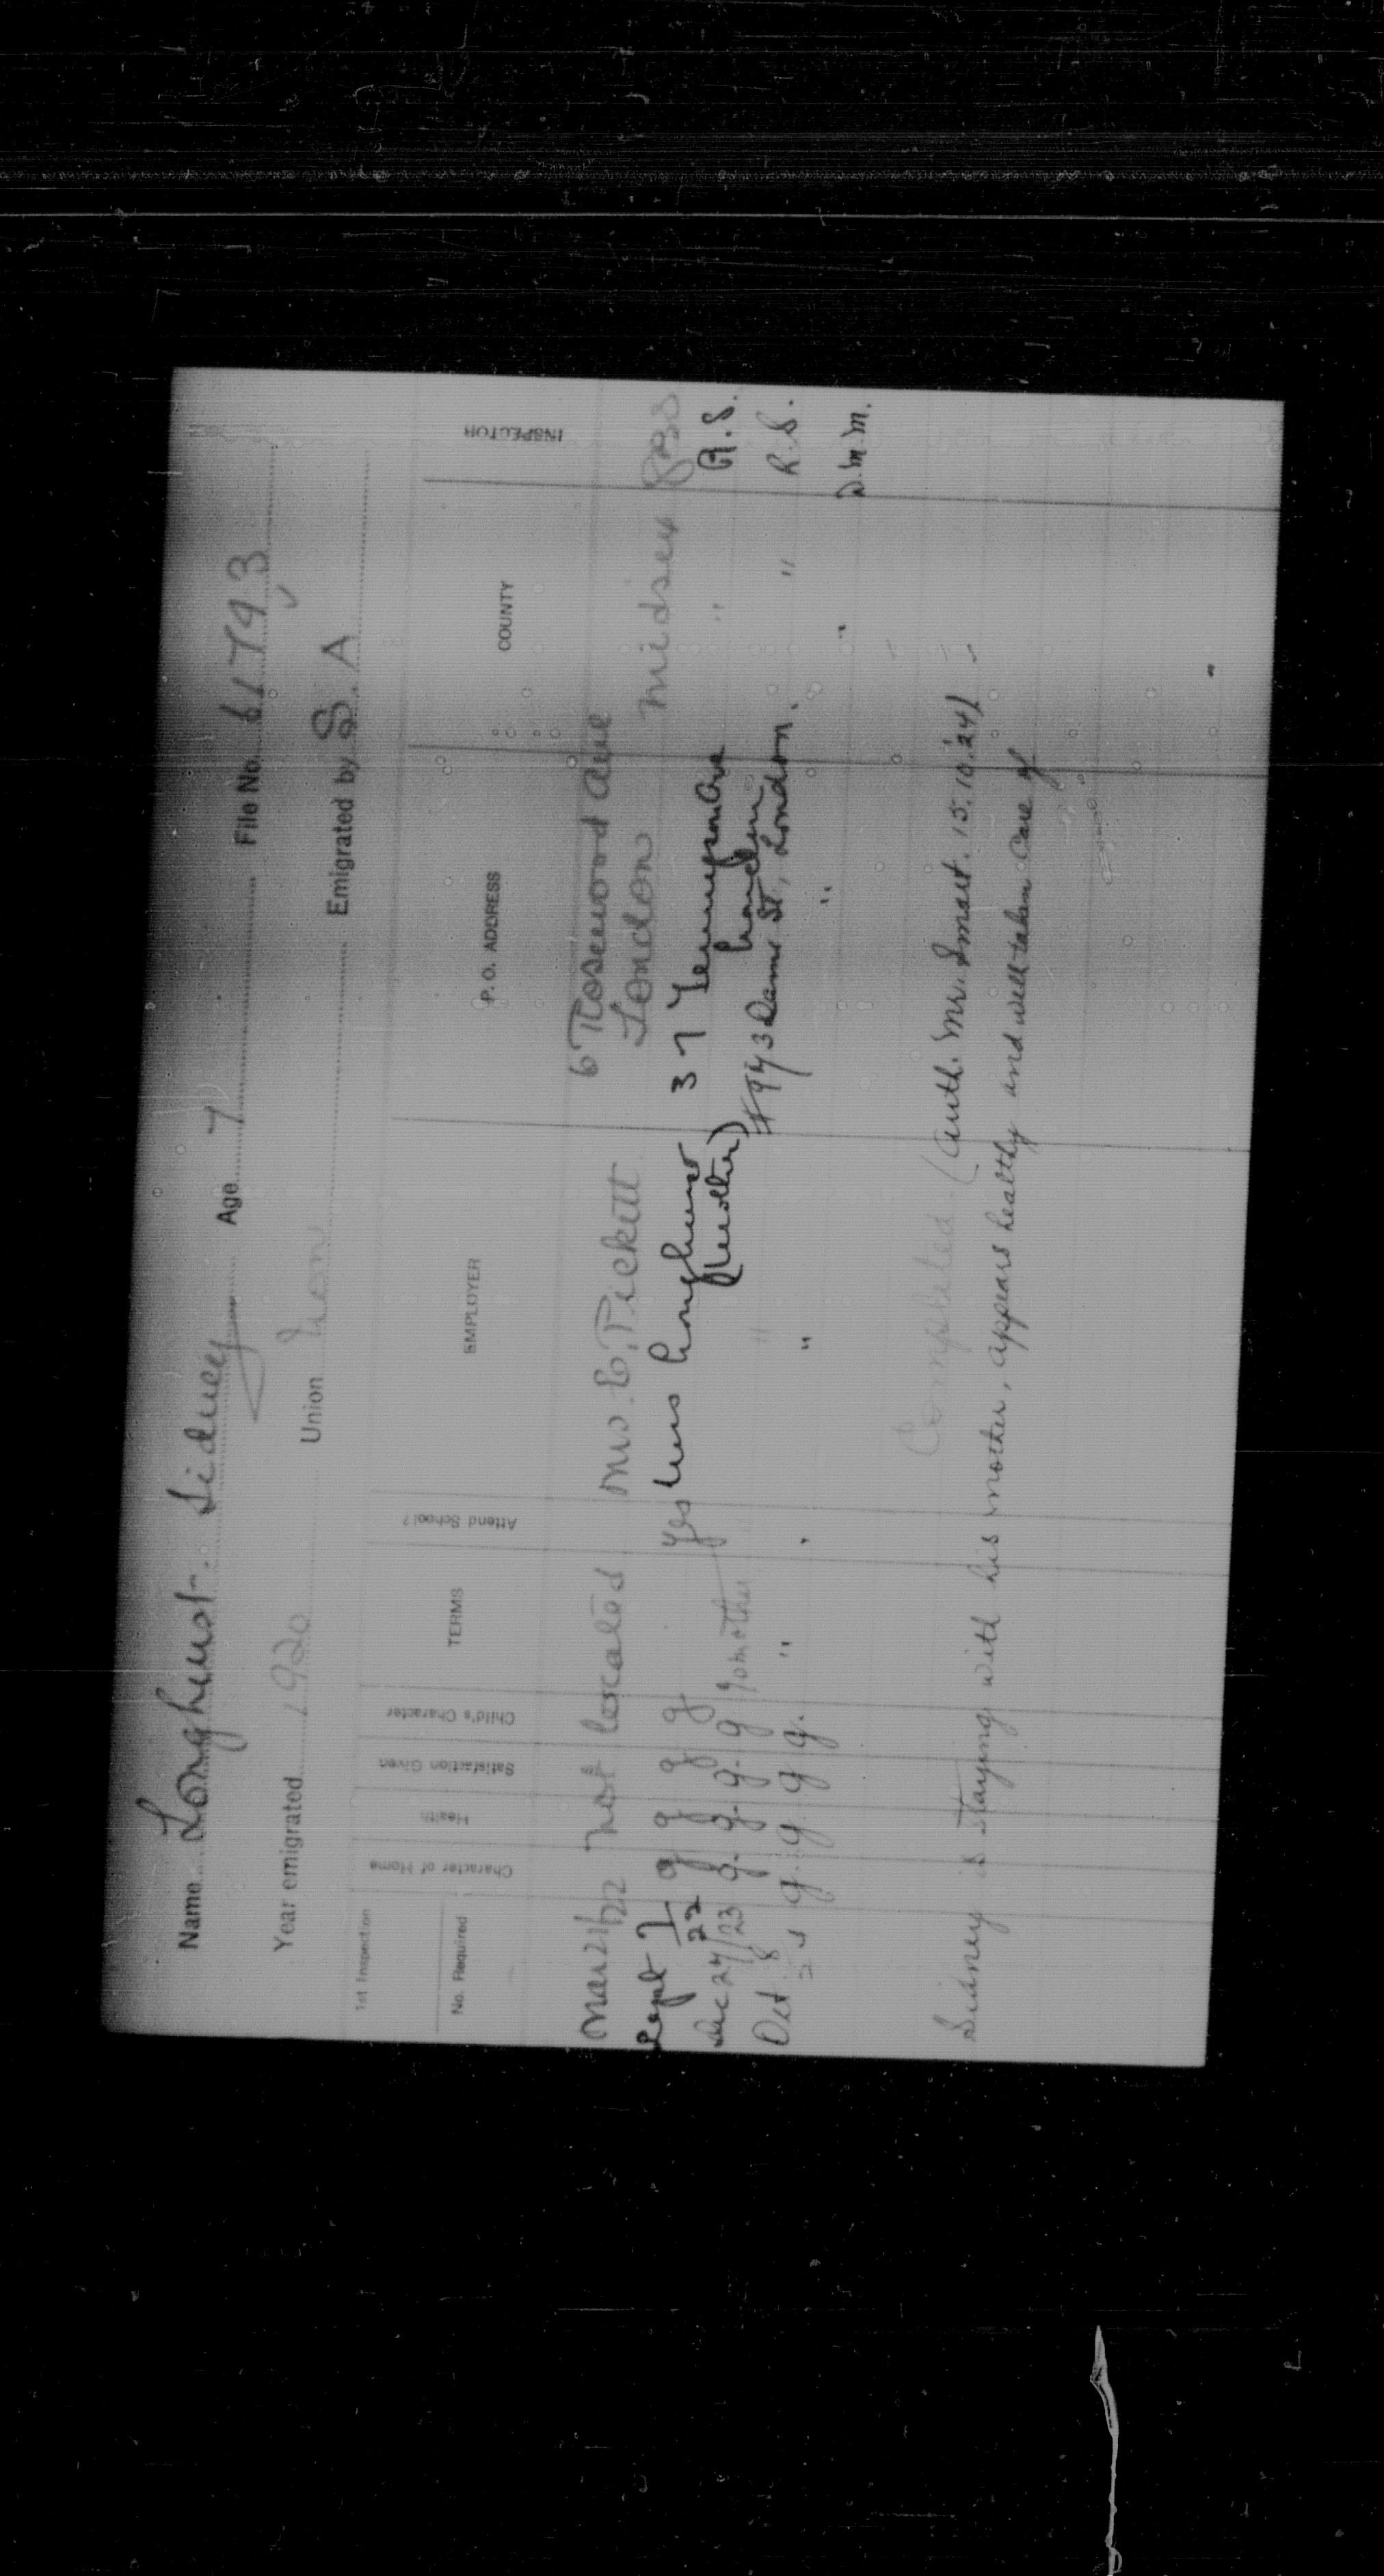 Name Longhurst. Sidney Age 7 File No. 61793
Year emigrated 1920 Union Non Emigrated by S. A
1st Inspection
No. Required Character of Home Health Satisfaction Given Child's Character TERMS Attend School? EMPLOYER P.O. ADDRESS COUNTY INSPECTOR
Mar 21/22 not located Mrs. C. Pickett 6 Rosewood Ave
London Midsex
Sept 7/22 g g g g Yes Mrs Longhurst 37 Tennyson Ave " R.S.
(Mother) London
Dec 27/23 g. g. g. g to mother " " #943 Dame St., London. " R.S.
Oct. 8 24 g. g. g g. " " " " " D.M.M.
Completed. (Auth. Mr. Smart. 15.10.24)
Sidney is staying with his mother, appears healthy and well taken care of